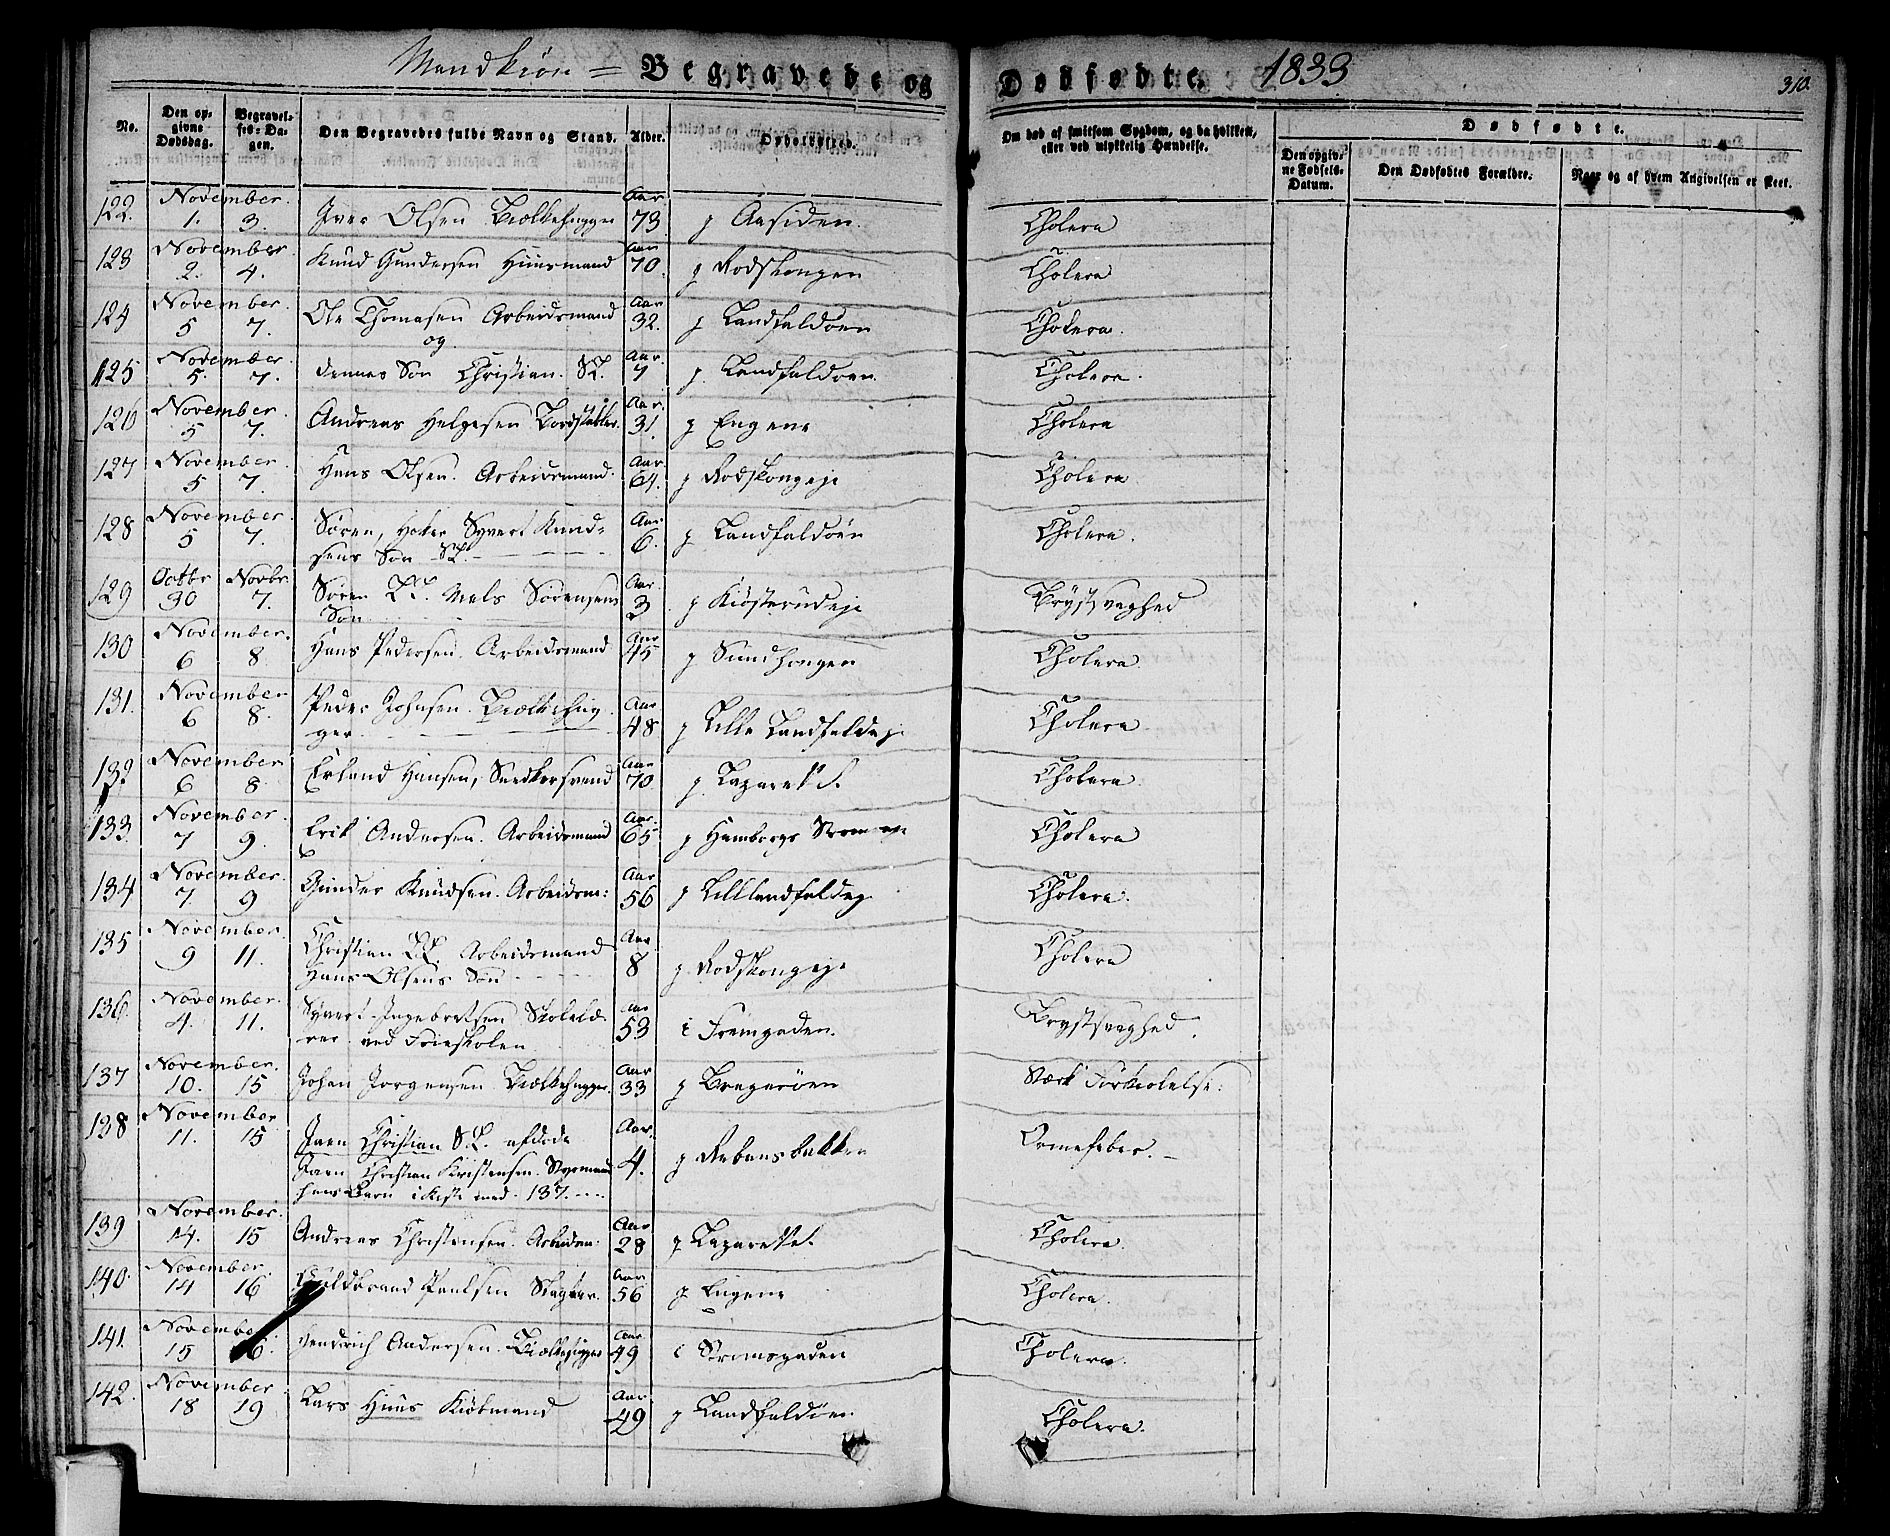 Mandkiøn = Begravede og Dødfødte. 1833 310.
No. Den opgivne Dødsdag. Begravelses-Dagen. Den Begravedes fulde Navn og Stand. Alder. Opholdssted. Om død af smitsom Sygdom, og da hvilken, eller ved ulykkelig Hændelse. Dødfødte.
Den opgivne Fødsels-Datum. Den Dødfødtes Forældre. Naar og af hvem Angivelsen er skeet.
122. November. 1. 3. Iver Olsen Biælkehugger Aar 73 p Aasiden. Cholera
123 November 2. 4. Knud Gundersen Huusmand Aar 70. p Rodskongen Cholera
124 November. 5 7. Ole Thomasen Arbeidsmand Aar 32. p Landfaldøen Cholera.
og
125 November. 5. 7. dennes Søn Christian. Aar. 7 p. Landfaldøen Cholera.
126 November. 5 7. Andreas Helgesen Bordstabler. Aar. 31. p Engene Cholera
127 November. 5 7. Hans Olsen. Arbeidsmand. Aar. 64. p Rodskongeje Cholera
128 November. 5 7. Søren, Syvert Knud-
sens Søn Aar 6. p Landfaldøen Cholera.
129 Octbr 30 Novbr. 7. Søren Niels Sørensens
Søn Aar. 3 p Kiøsterudeje Brystsvaghed
130 November. 6 8. Hans Pedersen. Arbeidsmand Aar 45 p Sundhougen Cholera.
131. November 6 8. Peder Johnsen. Biælkehug-
ger Aar 48 p Lille Landfaldeje Cholera
132 November 6 8. Erland Hansen, Snedkersvend Aar 70 p. Lazarettet. Cholera.
133. November. 7 9. Erik Andersen. Arbeidsmand Aar. 65 p Hamborgs Cholera
134 November. 7. 9 Gunder Knudsen. Arbeidsm: Aar 56 p Lillelandfaldeje Cholera.
135 November. 9 11. Christian Arbeidsmand
Hans Olsens Søn Aar. 8 p. Rodskongeje Cholera
136. November. 4. 11. Syvert Ingebretsen Skolelæ-
rer ved Frieskolen Aar 53 i Fremgaden. Brystsvaghed.
137 November. 10. 15 Johan Jorgensen. Biælkehugger. Aar 33 p Bragerøen Stærk Forkiølelse.
138 November 11. 15 Jaen Christian afdøde
Jaen Christian Kristensen. Styrmand
hans Barn i Kiste med 137. Aar. 4. p Rebansbakken Ormefeber.
139 November. 14. 15 Andreas Christensen. Arbeidsm: Aar 28 p Lazarettet. Cholera.
140. November. 14 16 Guldbrand Paulsen Slagter. Aar 56 p Engene Cholera.
141. November. 15 16. Hendrich Andersen. Biælkehugger Aar 49 i Strømsgaden Cholera.
142. November. 18 19 Lars Huus Kiøbmand Aar 49 p Landfaldøen. Cholera.